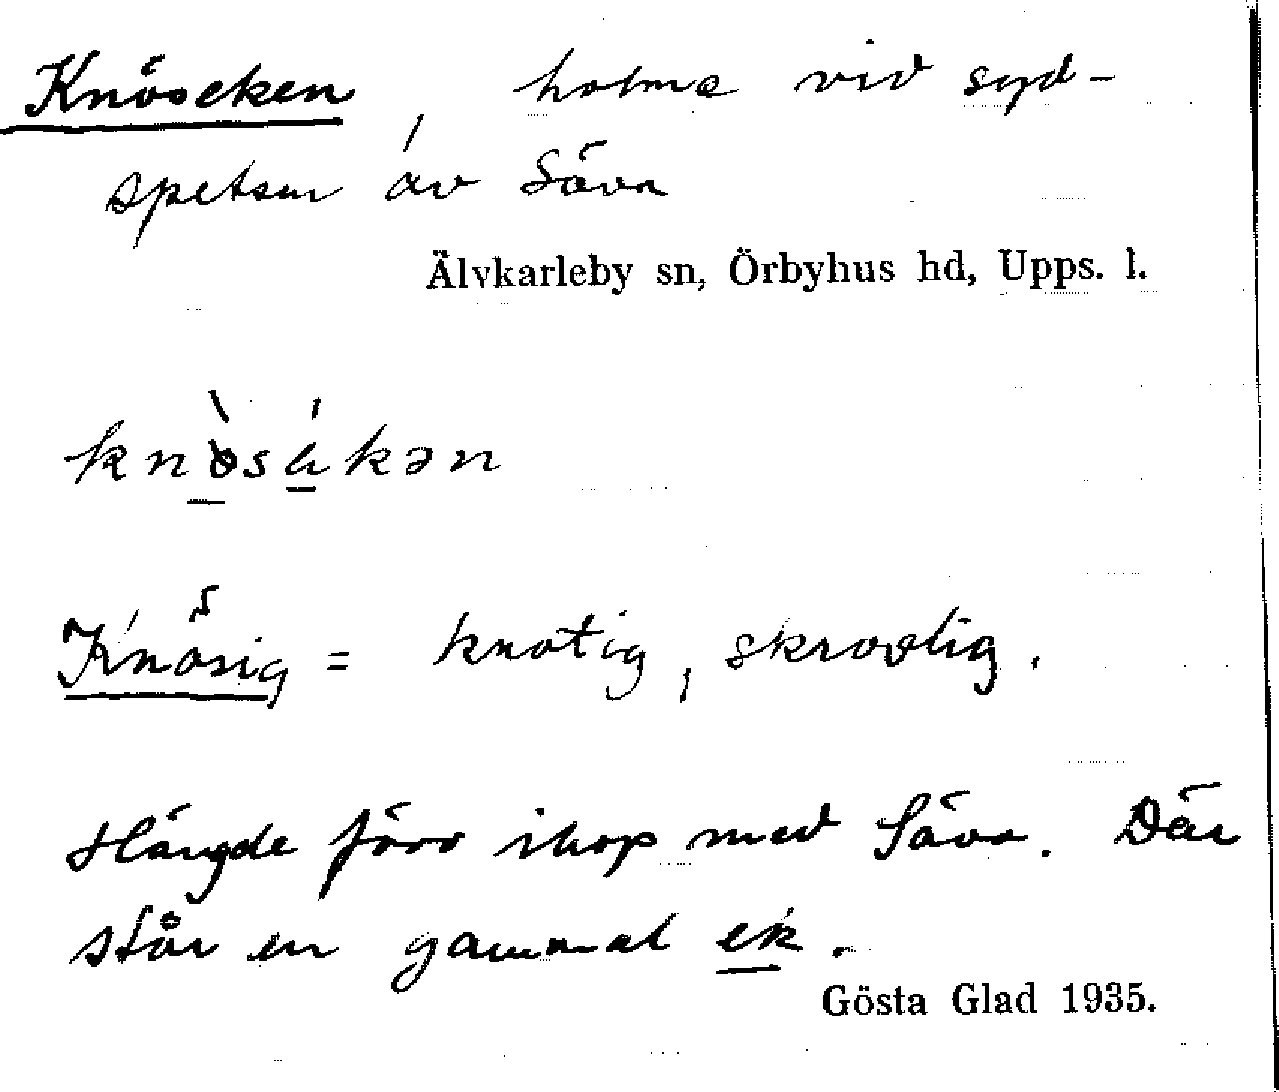 Knöseken, holme vid syd-
spetsen av Säva
Älvkarleby sn, Örbyhus hd, Upps. l.
Knösig = knotig, skrovlig.
Hängde förr ihop med Säva. Där
står en gammal ek.
Gösta Glad 1935.